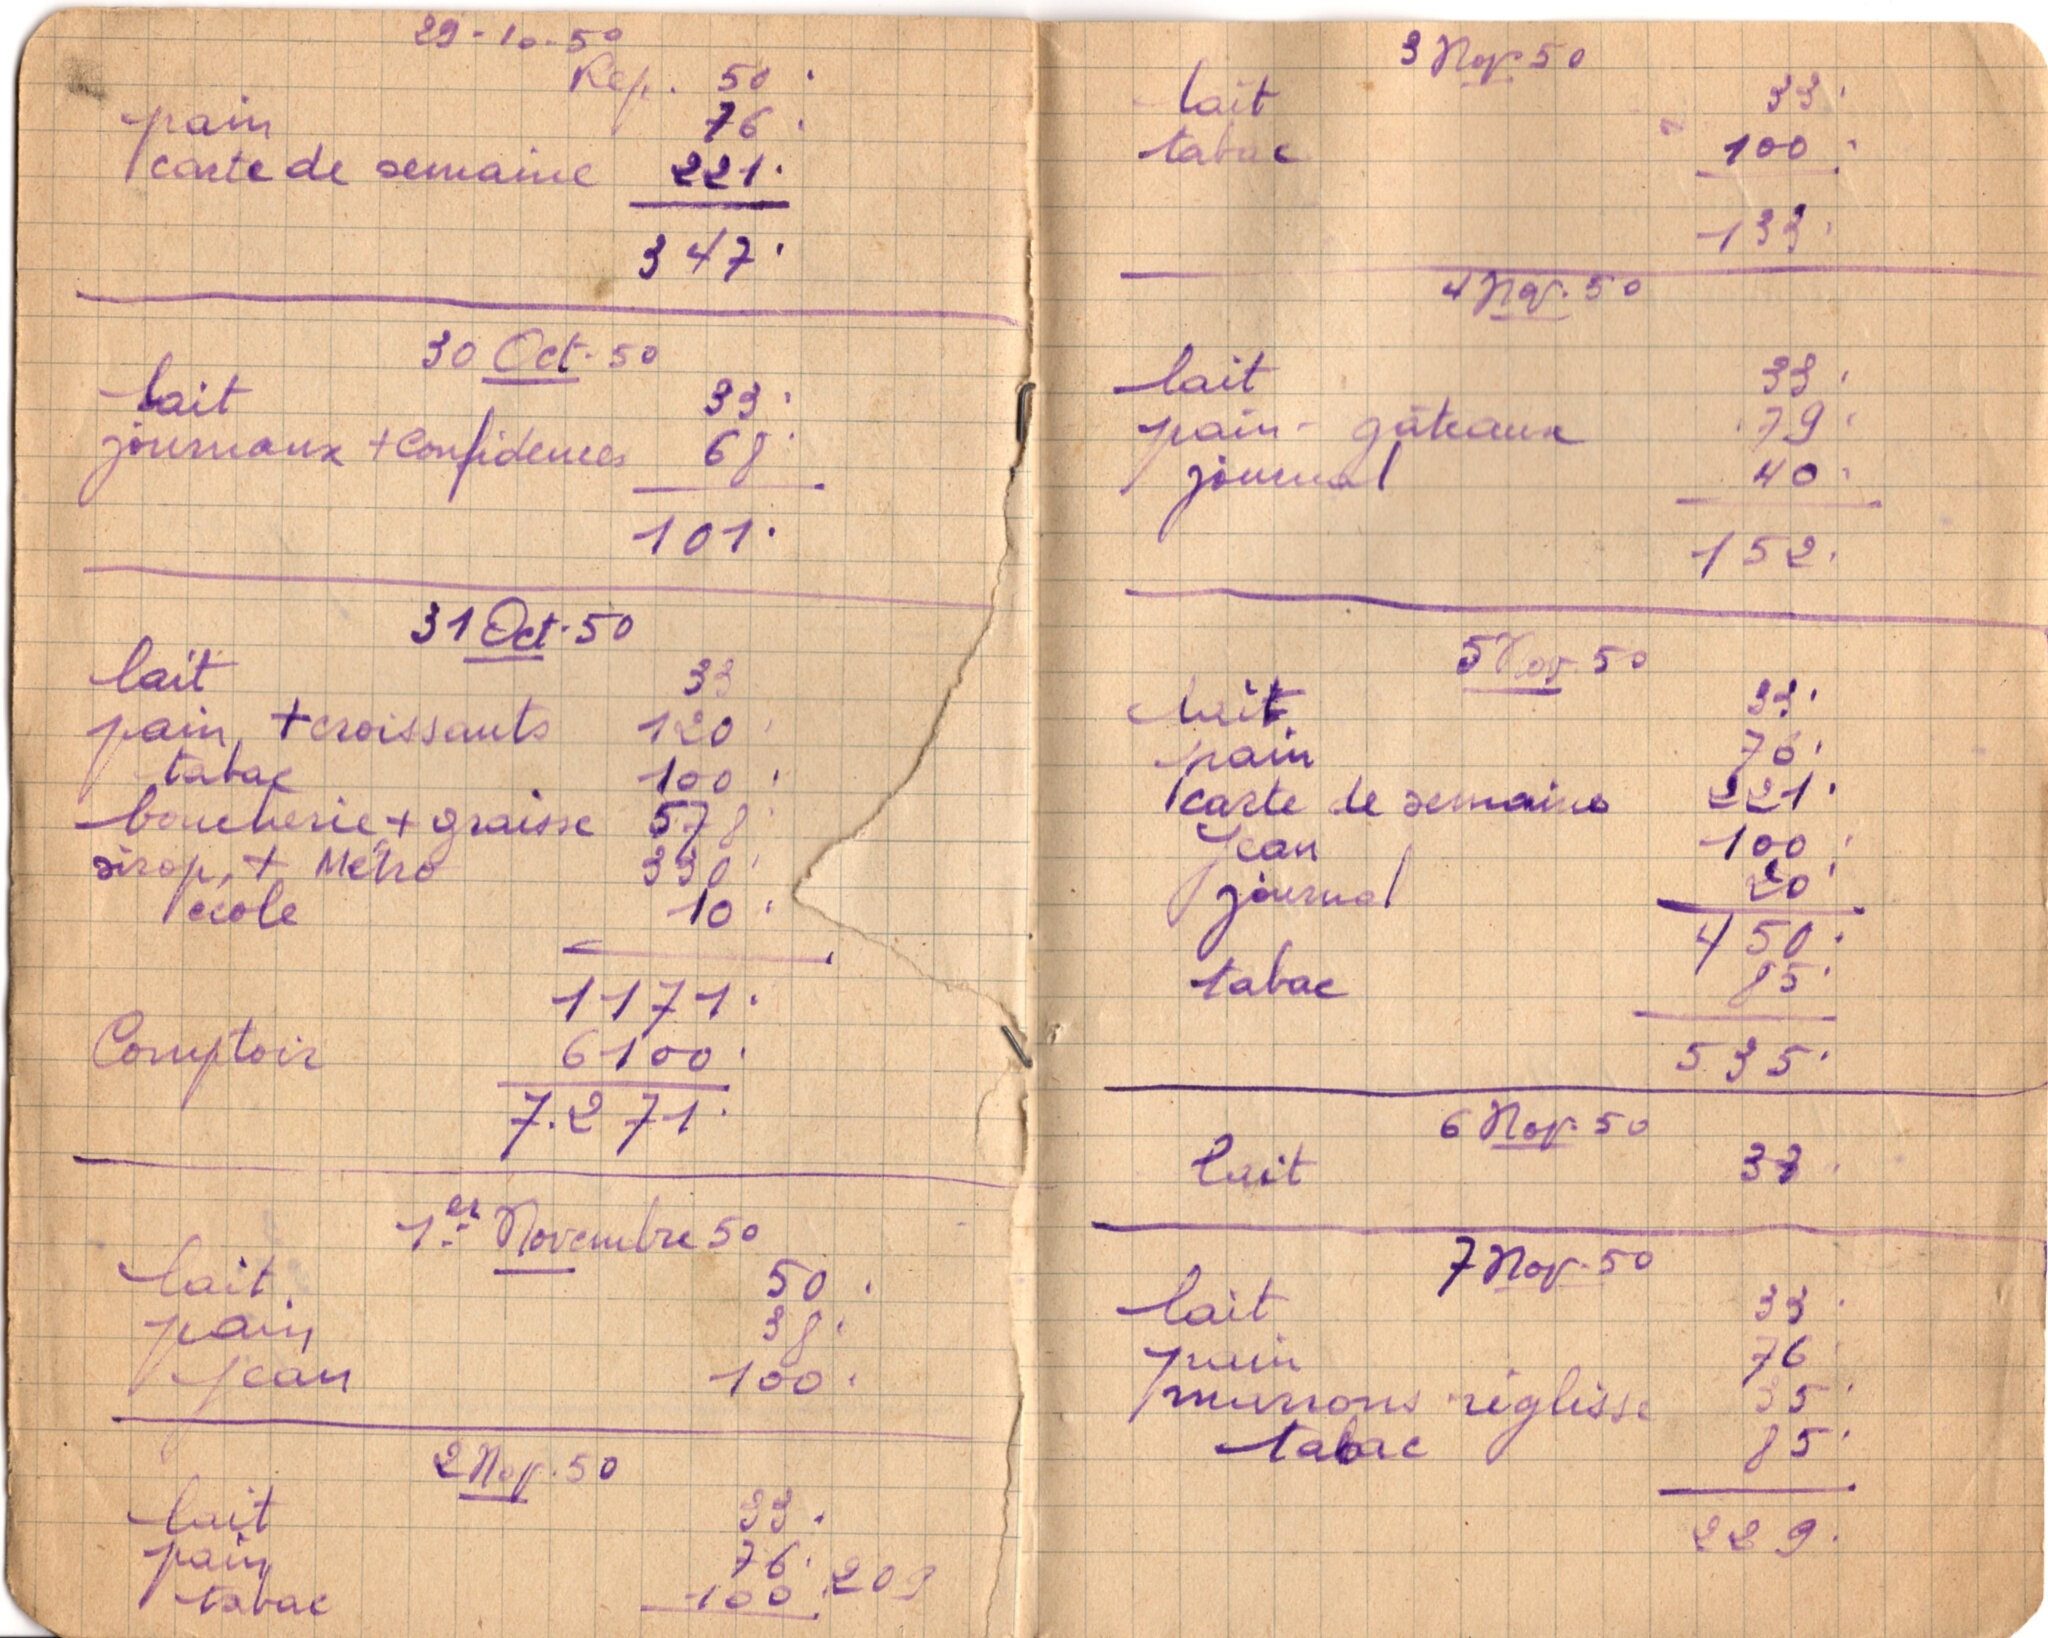 29-10-50
Rep. 50
pain 76
carte de semaine 221
347
30 Oct. 50
lait 33
journaux + Confidences 68
101
31 Oct. 50
lait 33
pain + croissants 120
tabac 100
boucherie + graisse 578
sirop + Métro 330
école 10
1171
Comptoir 6100
7.271
1er Novembre 50
lait 50
pain 38
jean 100
2 Nov. 50
lait 33
pain 76
tabac 100 209
3 Nov. 50
lait 33
tabac 100
133
4 Nov. 50
lait 33
pain - gâteaux 79
journal 40
152
5 Nov. 50
lait 33
pain 76
carte de semaine 221
Jean 100
journal 20
450
tabac 85
535
6 Nov. 50
lait 33
7 Nov. 50
lait 33
pain 76
marrons réglisse 35
tabac 85
229